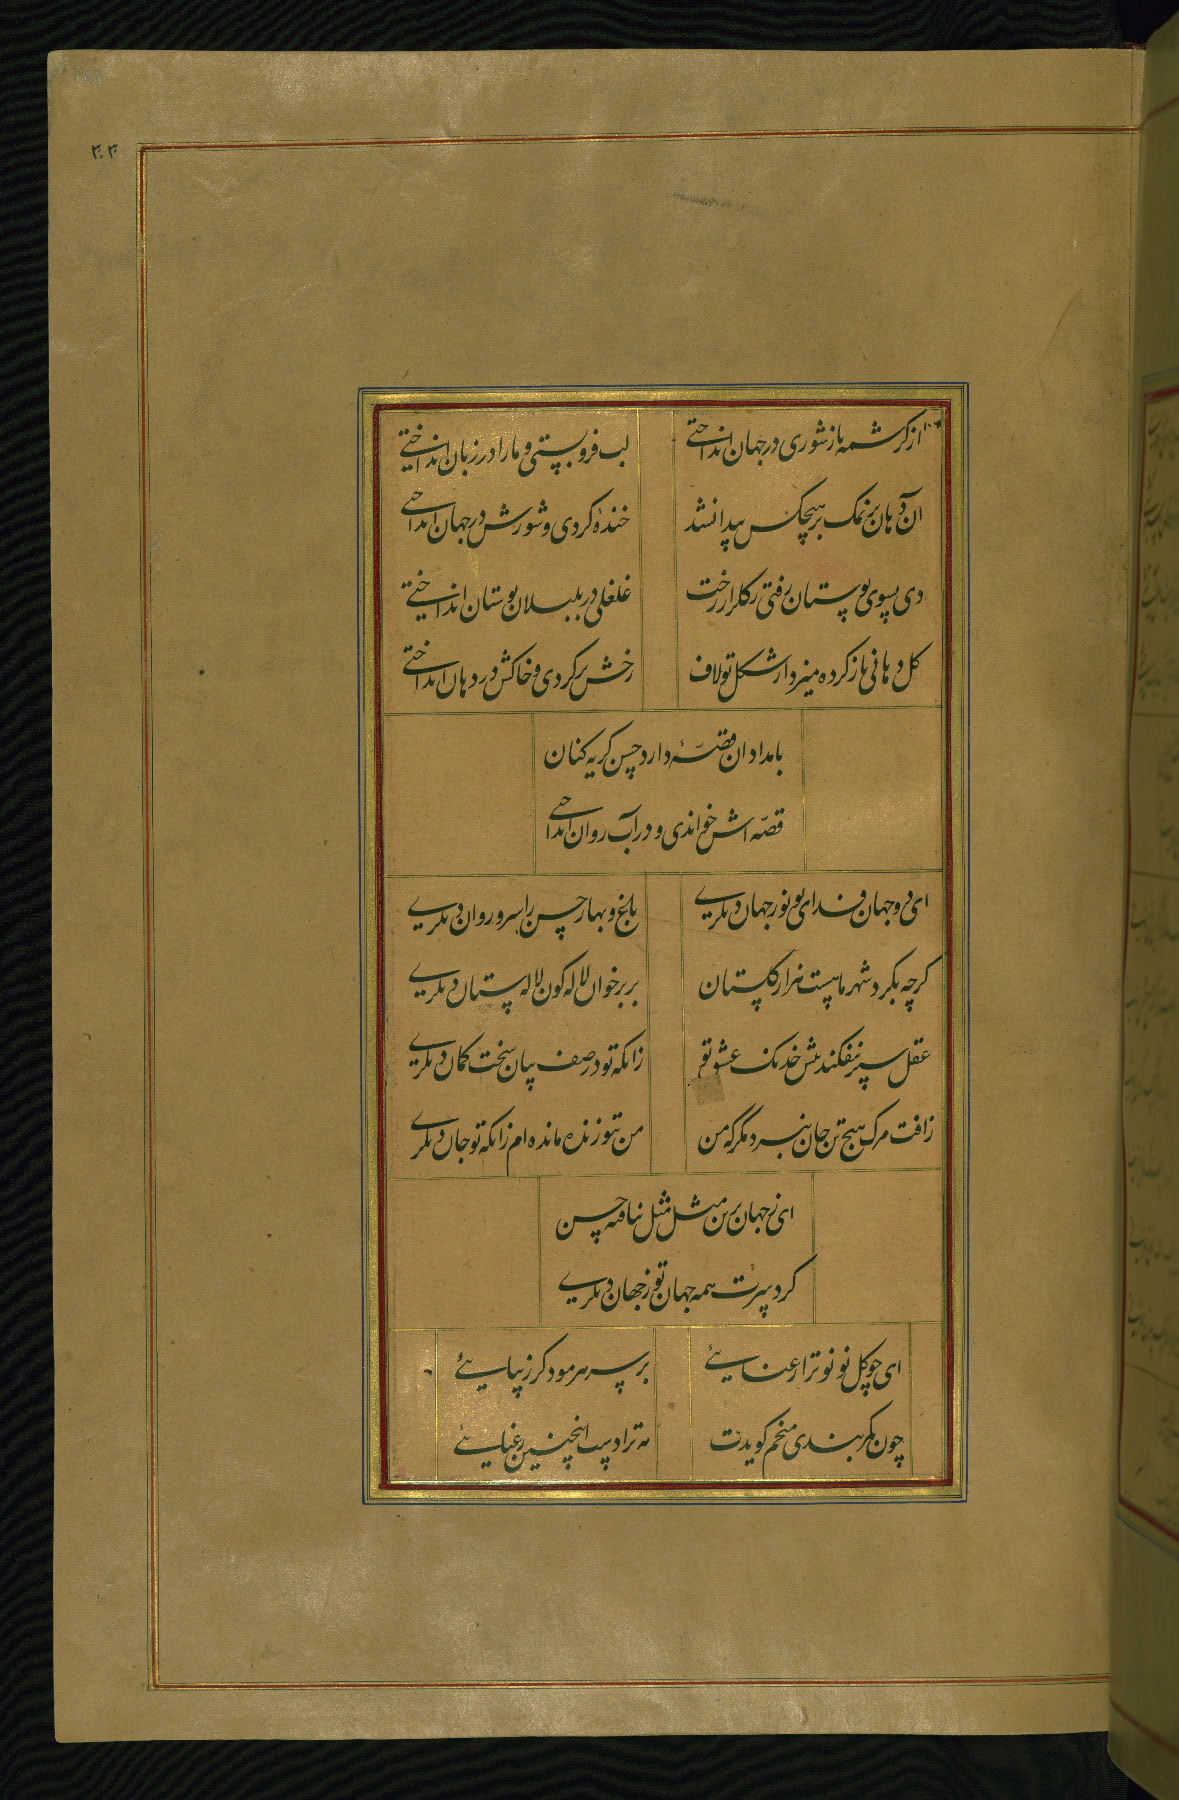 از کرشمه باز شوری در جهان انداختی
لب فرو بستی و ما را در زبان انداختی
ان دهان پر نمک بر هیچکس پیدا نشد
خندهٔ کردی و شورش در جهان انداختی
دی بسوی بوستان رفتی ز گلزار رخت
غلغلی در بلبلان بوستان انداختی
کل دهانی باز کرده میزد از شکل تو لاف
رخش بر کردی و خاکش در دهان انداختی
بامدادان قصّهٔ دارد حسن کریه کنان
قصّه اش خواندی و در آب روان انداختی
ای دو جهان فدای تو نور جهان دیکری
باغ و بهار حسن را سرو روان دیکری
کرچه بکرد شهر ما هست هزار کلستان
بر برخوان لاله کون لاله ستان دیکری
عقل سپر بیفکند پیش خدنک عشق تو
زانکه تو در صف بتان سخت کمان دیکری
ز افت مرک هیچ تن جان نبرد مکر که من
من بتو زنده مانده ام زانکه تو جان دیکری
ای ز جهان برین مثل مثل نیافته حسن
کرد سرت همه جهان تو ز جهان دیکری
ای چو کل نو نو ترا رعنایئ
بر سر هر مو دکر زیبایئ
چون کمر بندی منخم کویدت
نه ترا دست اینچنین رعنایئ